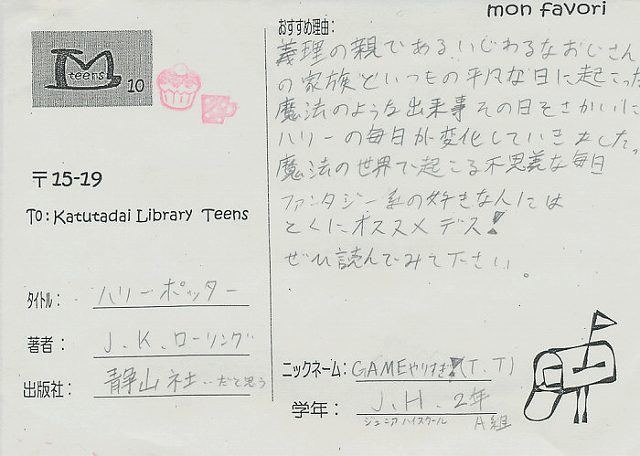 mon favori
M
teens
10
〒15-19
To: Katutadai Library Teens
タイトル: ハリーポッター
著者: J.K.ローリング
出版社: 静山社..だと思う
おすすめ理由:
義理の親である、いじわるなおじさん
の家族といつもの平凡な日に起こった
魔法のような出来事その日をさかいに
ハリーの毎日が変化していきました。
魔法の世界で起こる不思議な毎日
ファンタジー系の好きな人には
とくにオススメデス!
ぜひ読んでみて下さい。
ニックネーム: GAMEやりすぎ!(T.T)
学年: J.H.2年
ジュニアハイスクール A組